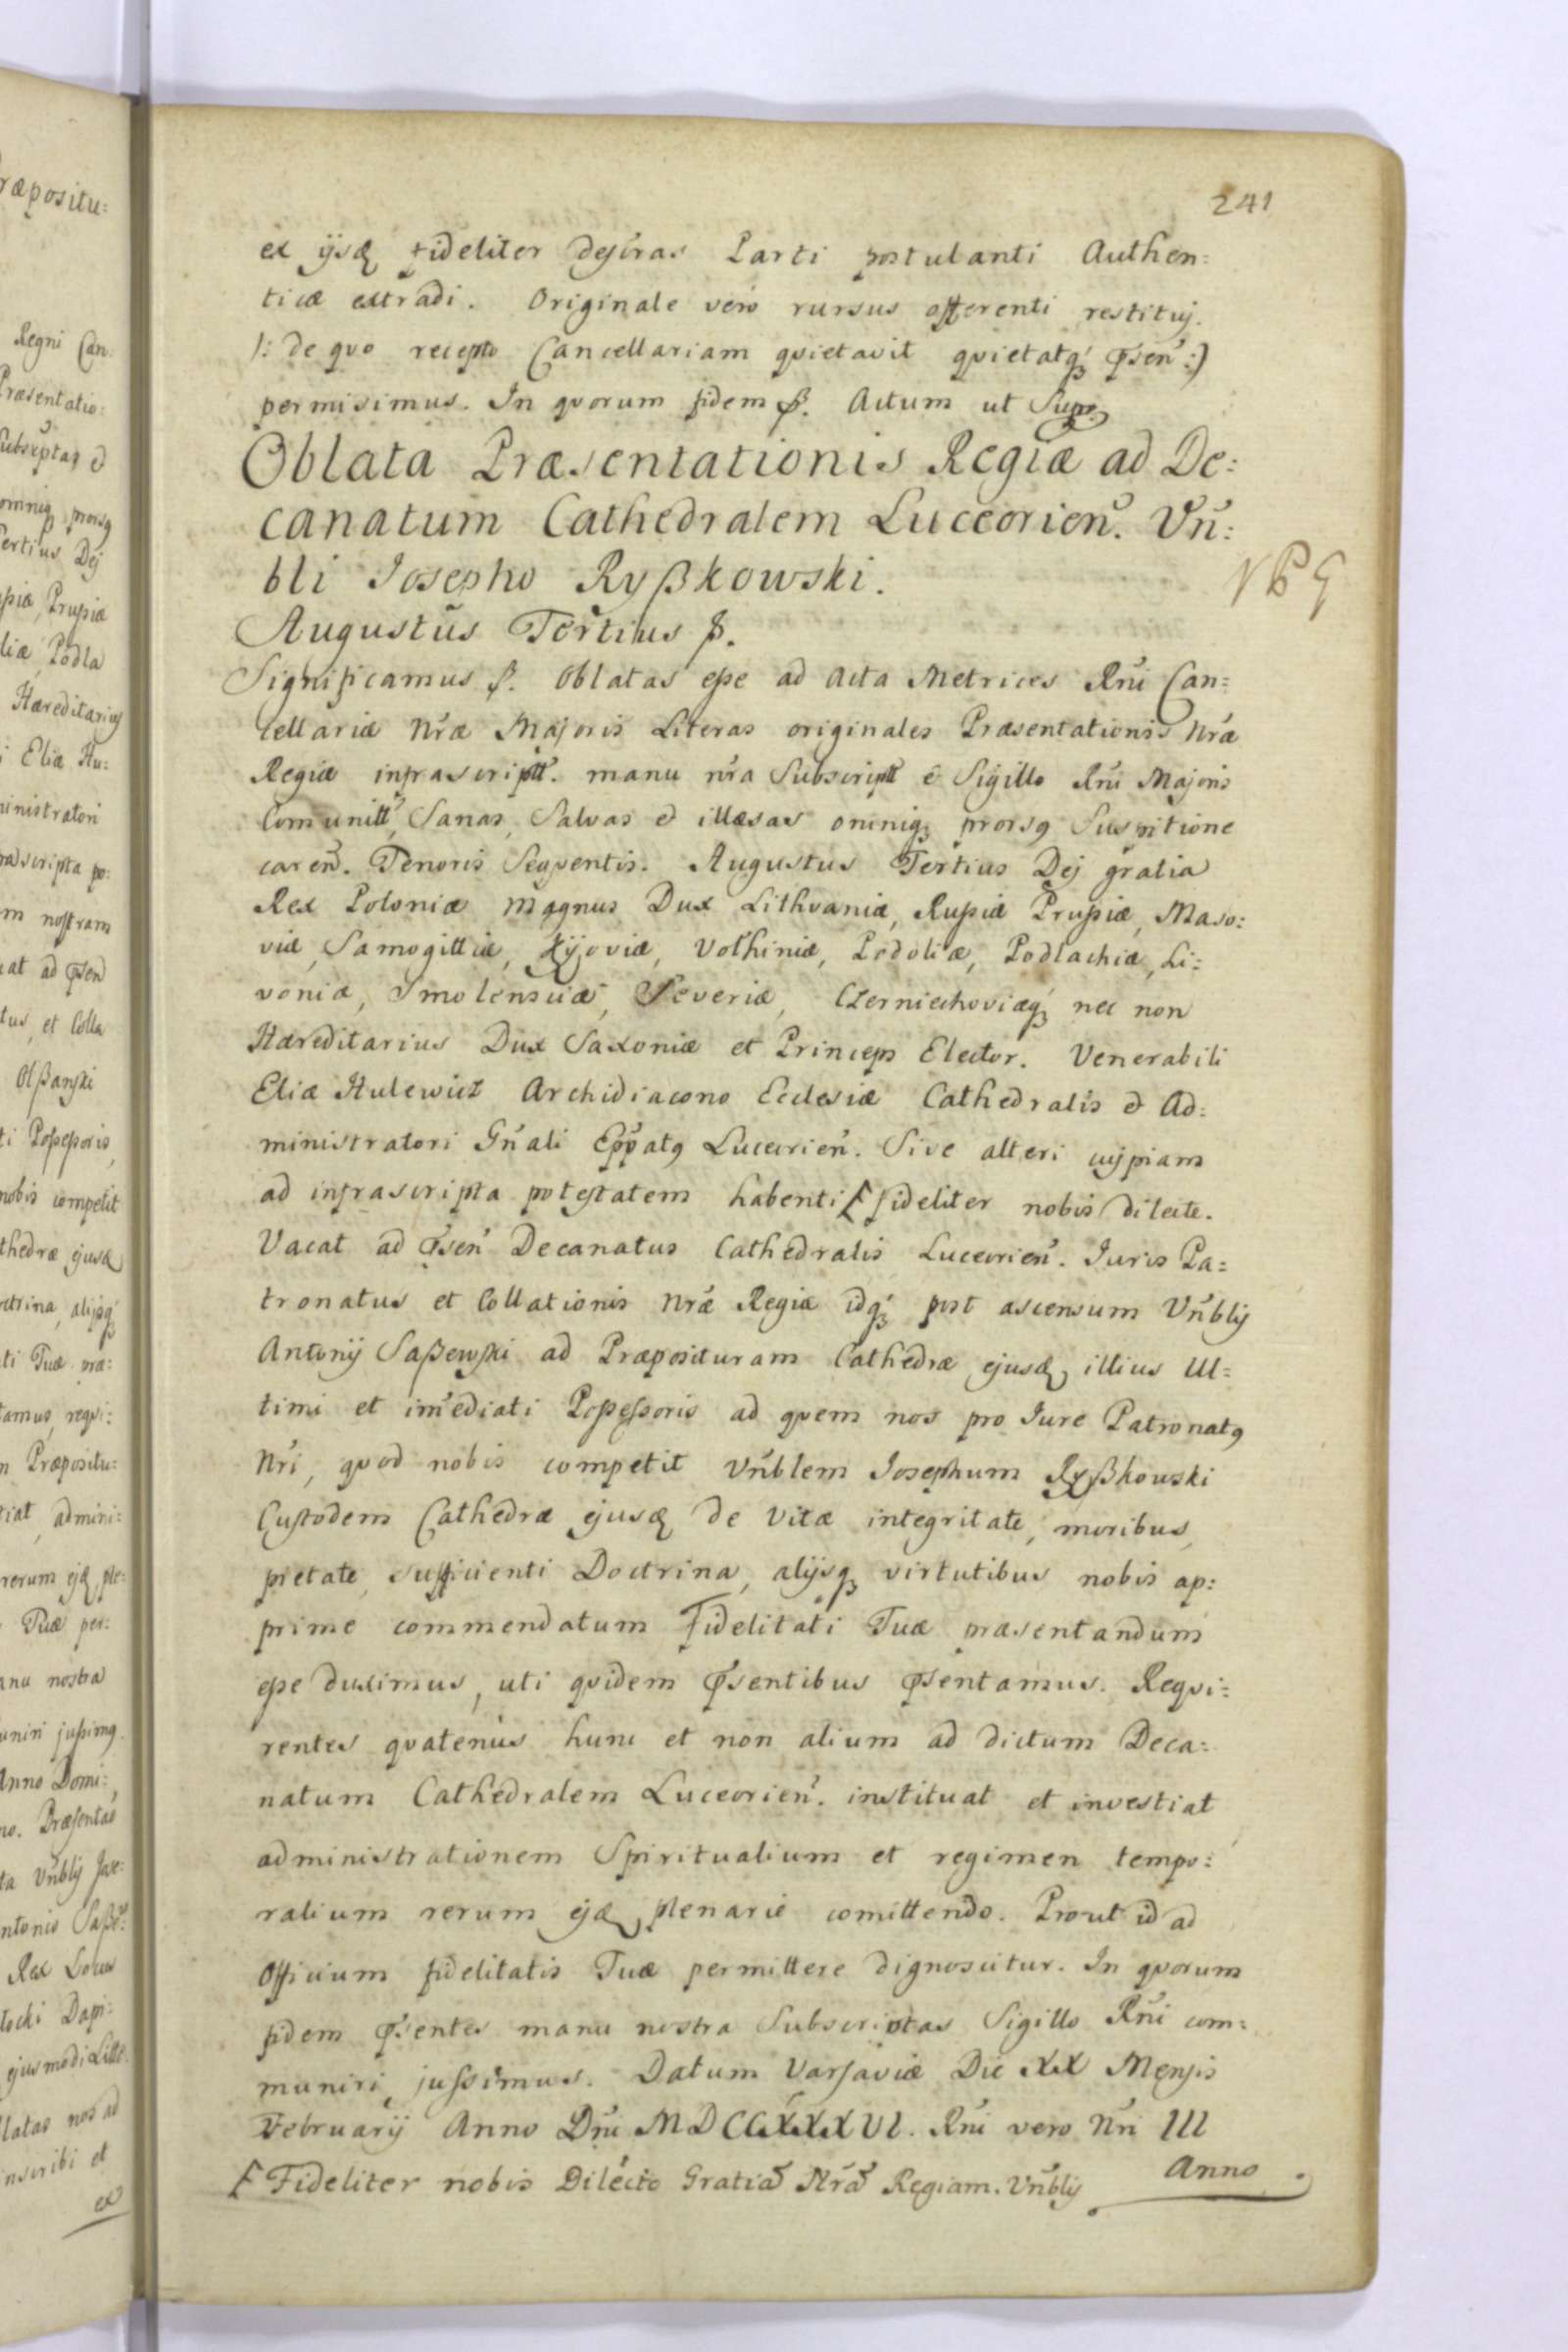 241
ex ijsd fideliter descras Parti postulanti Authen:
ticæ extradi. Originale vero rursus offerenti restitui.
/: de quo recepto Cancellariam quietavit quietatq́ꝫ p̄sen̄ :/
permisimus. In quorum fidem ꝭ. Actum ut Supra
Oblata Præsentationis Regiæ ad De:
canatum Cathedralem Luceorien̄. Vn̄:
bli Josepho Ryßkowski.
Augustus Tertius ꝭ.
Significamus ꝭ. Oblatas eße ad Acta Metrices Rn̄i Can:
cellariæ Nr̄æ Majoris Literas originales Præsentationis Nr̄æ
Regiæ infrascriptt. manu nr̄a Subscriptt ē Sigillo Rn̄i Majoris
Comunitt̄, Sanas, Salvas & illæsas omniqꝫ prorsꝰ Suspitione
caren̄. Tenoris Sequentis. Augustus Tertius Dej gratia
Rex Poloniæ Magnus Dux Lithvaniæ, Rußiæ Prußiæ, Maso:
viæ, Samogittiæ, Kijoviæ, Volhiniæ, Podoliæ, Podlachiæ, Li:
voniæ, Smolensciæ, Severiæ, Czerniechoviæqꝫ nec non
Hæreditarius Dux Saxoniæ et Princeps Elector. Venerabili
Eliæ Hulewicz Archidiacono Ecclesiæ Cathedralis & Ad:
ministratori Gn̄ali Epp̄atꝰ Luceorien̄. Sive alteri cujpiam
ad infrascripta potestatem habenti Ⱶ fideliter nobis dilecte.
Vacat ad p̄sen̄ Decanatus Cathedralis Luceorien̄. Juris Pa:
tronatus et Collationis Nr̄æ Regiæ idqꝫ post ascensum Vn̄blij
Antonij Saßewski ad Præposituram Cathedræ ejusd illius Ul:
timi et im̄ediati Poßeßoris ad quem nos pro Jure Patronatꝰ
Nr̄i, quod nobis competit Vn̄blem Josephum Ryßkowski
Custodem Cathedræ ejusd de Vitæ integritate, moribus,
pietate, sufficienti Doctrina, alijsqꝫ virtutibus nobis ap:
prime commendatum Fidelitati Tuæ præsentandum
eße duximus, uti quidem p̄sentibus p̄sentamus. Requi:
rentes quatenus hunc et non alium ad dictum Deca:
natum Cathedralem Luceorien̄. instituat et investiat
administrationem Spiritualium et regimen tempo:
ralium rerum ejd plenarie comittendo. Prout id ad
Officium fidelitatis Tuæ permittere dignoscitur. In quorum
fidem p̄sentes manu nostra Subscriptas Sigillo Rn̄i com:
muniri jußimus. Datum Varsaviæ Die XX Mensis
Februarij Anno Dn̄i MDCCXXXVI. Rn̄i vero Nr̄i III
Anno
Ⱶ Fideliter nobis Dilecto Gratiā Nr̄ā Regiam. Vn̄blij